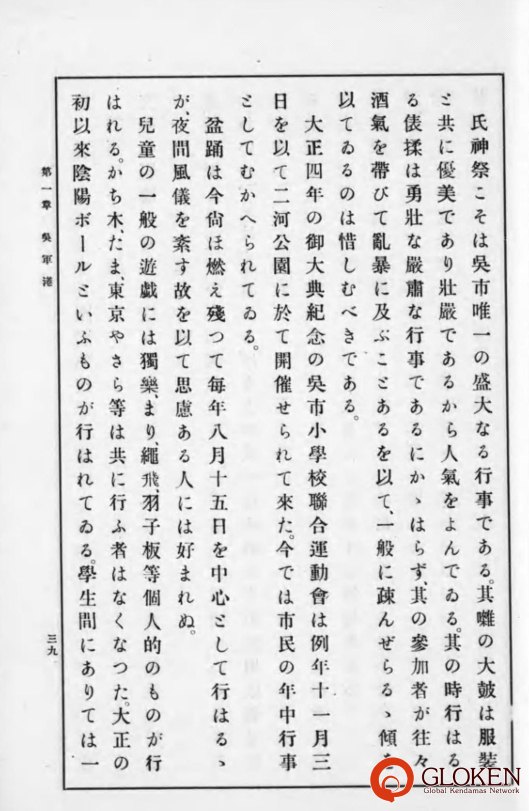 氏神祭こそは吳市唯一の盛大なる行事である。其囃の大皷は服裝
と共に優美であり壯嚴であるから人氣をよんでゐる。其の時行はる
る俵揉は勇壯な嚴肅な行事であるにかゝはらず、其の參加者が往々
酒氣を帶びて亂暴に及ぶことあるを以て、一般に疎んぜらるゝ傾を
以てゐるのは惜しむべきである。
大正四年の御大典紀念の吳市小學校聯合運動會は例年十一月三
日を以て二河公園に於て開催せられて來た。今では市民の年中行事
としてむかへられてゐる。
盆踊は今尙ほ燃え殘つて每年八月十五日を中心として行はるゝ
が、夜間風儀を紊す故を以て思慮ある人には好まれぬ。
兒童の一般の遊戲には獨樂、まり、繩飛、羽子板等個人的のものが行
はれる。かち木、たま、東京やさら等は共に行ふ者はなくなつた。大正の
初以來陰陽ボールといふものが行はれてゐる。學生間にありては一
第一章 吳軍港
三九
GLOKEN
Global Kendamas Network